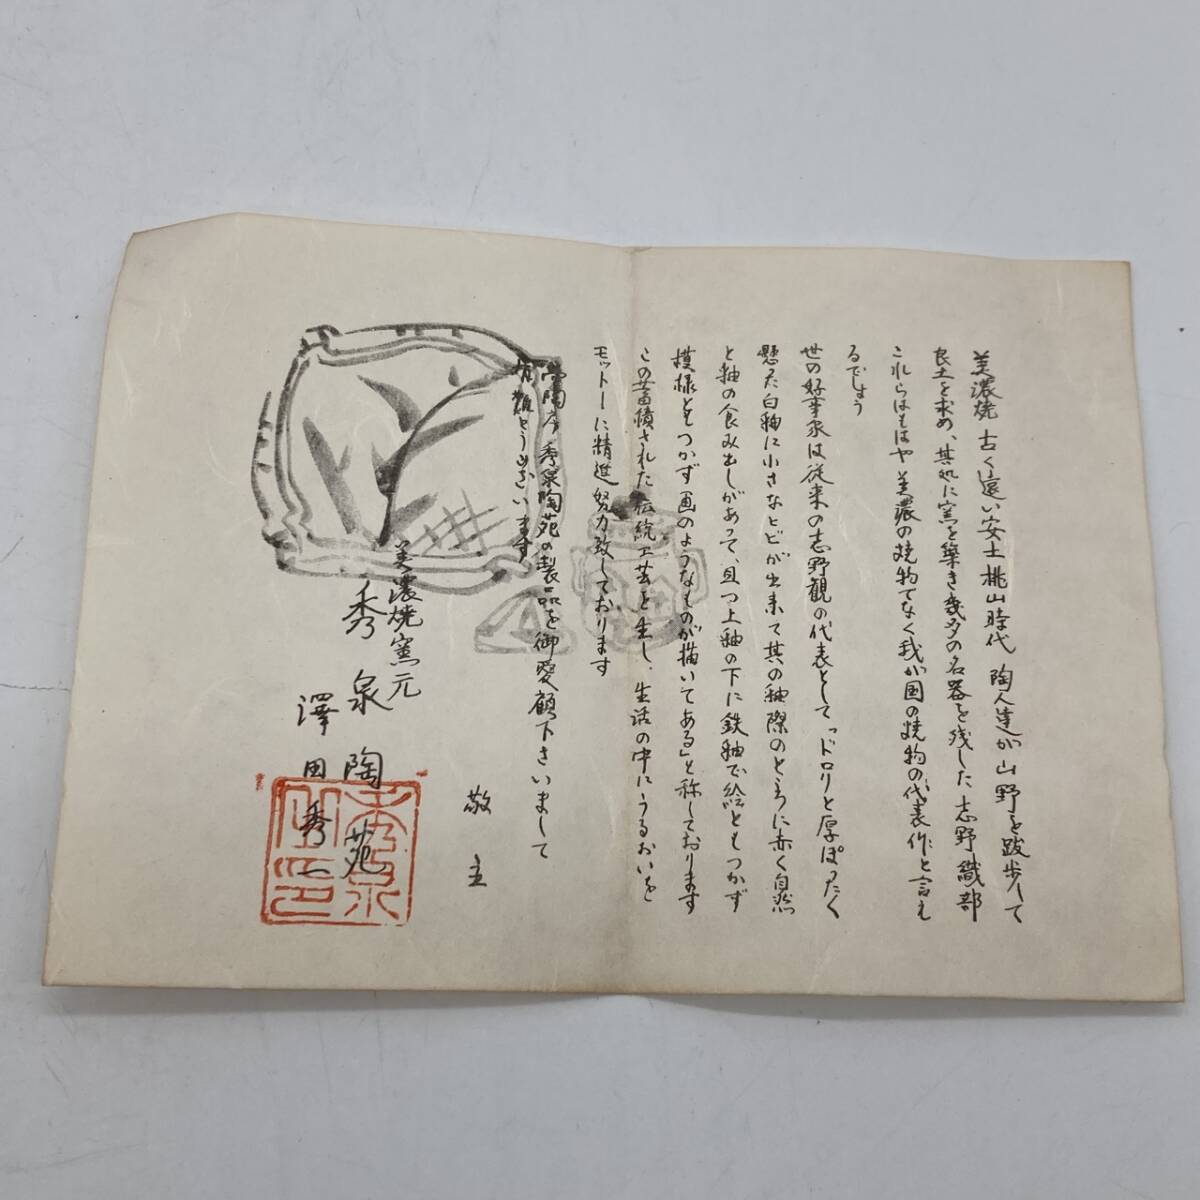 美濃焼 古く遠い安土桃山時代 陶人達が山野を跋歩して
良土を求め、其処に窯を築き幾多の名器を残した志野織部
これらはもはや美濃の焼物でなく我が国の焼物の代表作と言え
るでしょう
世の好事家は従来の志野観の代表として「ドロリと厚ぽったく
懸た白釉に小さなヒビが出来て其の釉際のところに赤く自然
と釉の食み出しがあって、且つ上釉の下に鉄釉で絵ともつかず
模様ともつかず画のようなものが描いてある」と称しております
この蓄積された伝統工芸を生し、生活の中にうるおいを
モットーに精進努力致しております
秀泉陶苑の製品を御愛顧下さいまして
有難とうございます
敬主
美濃焼窯元
秀泉陶苑
澤田秀一